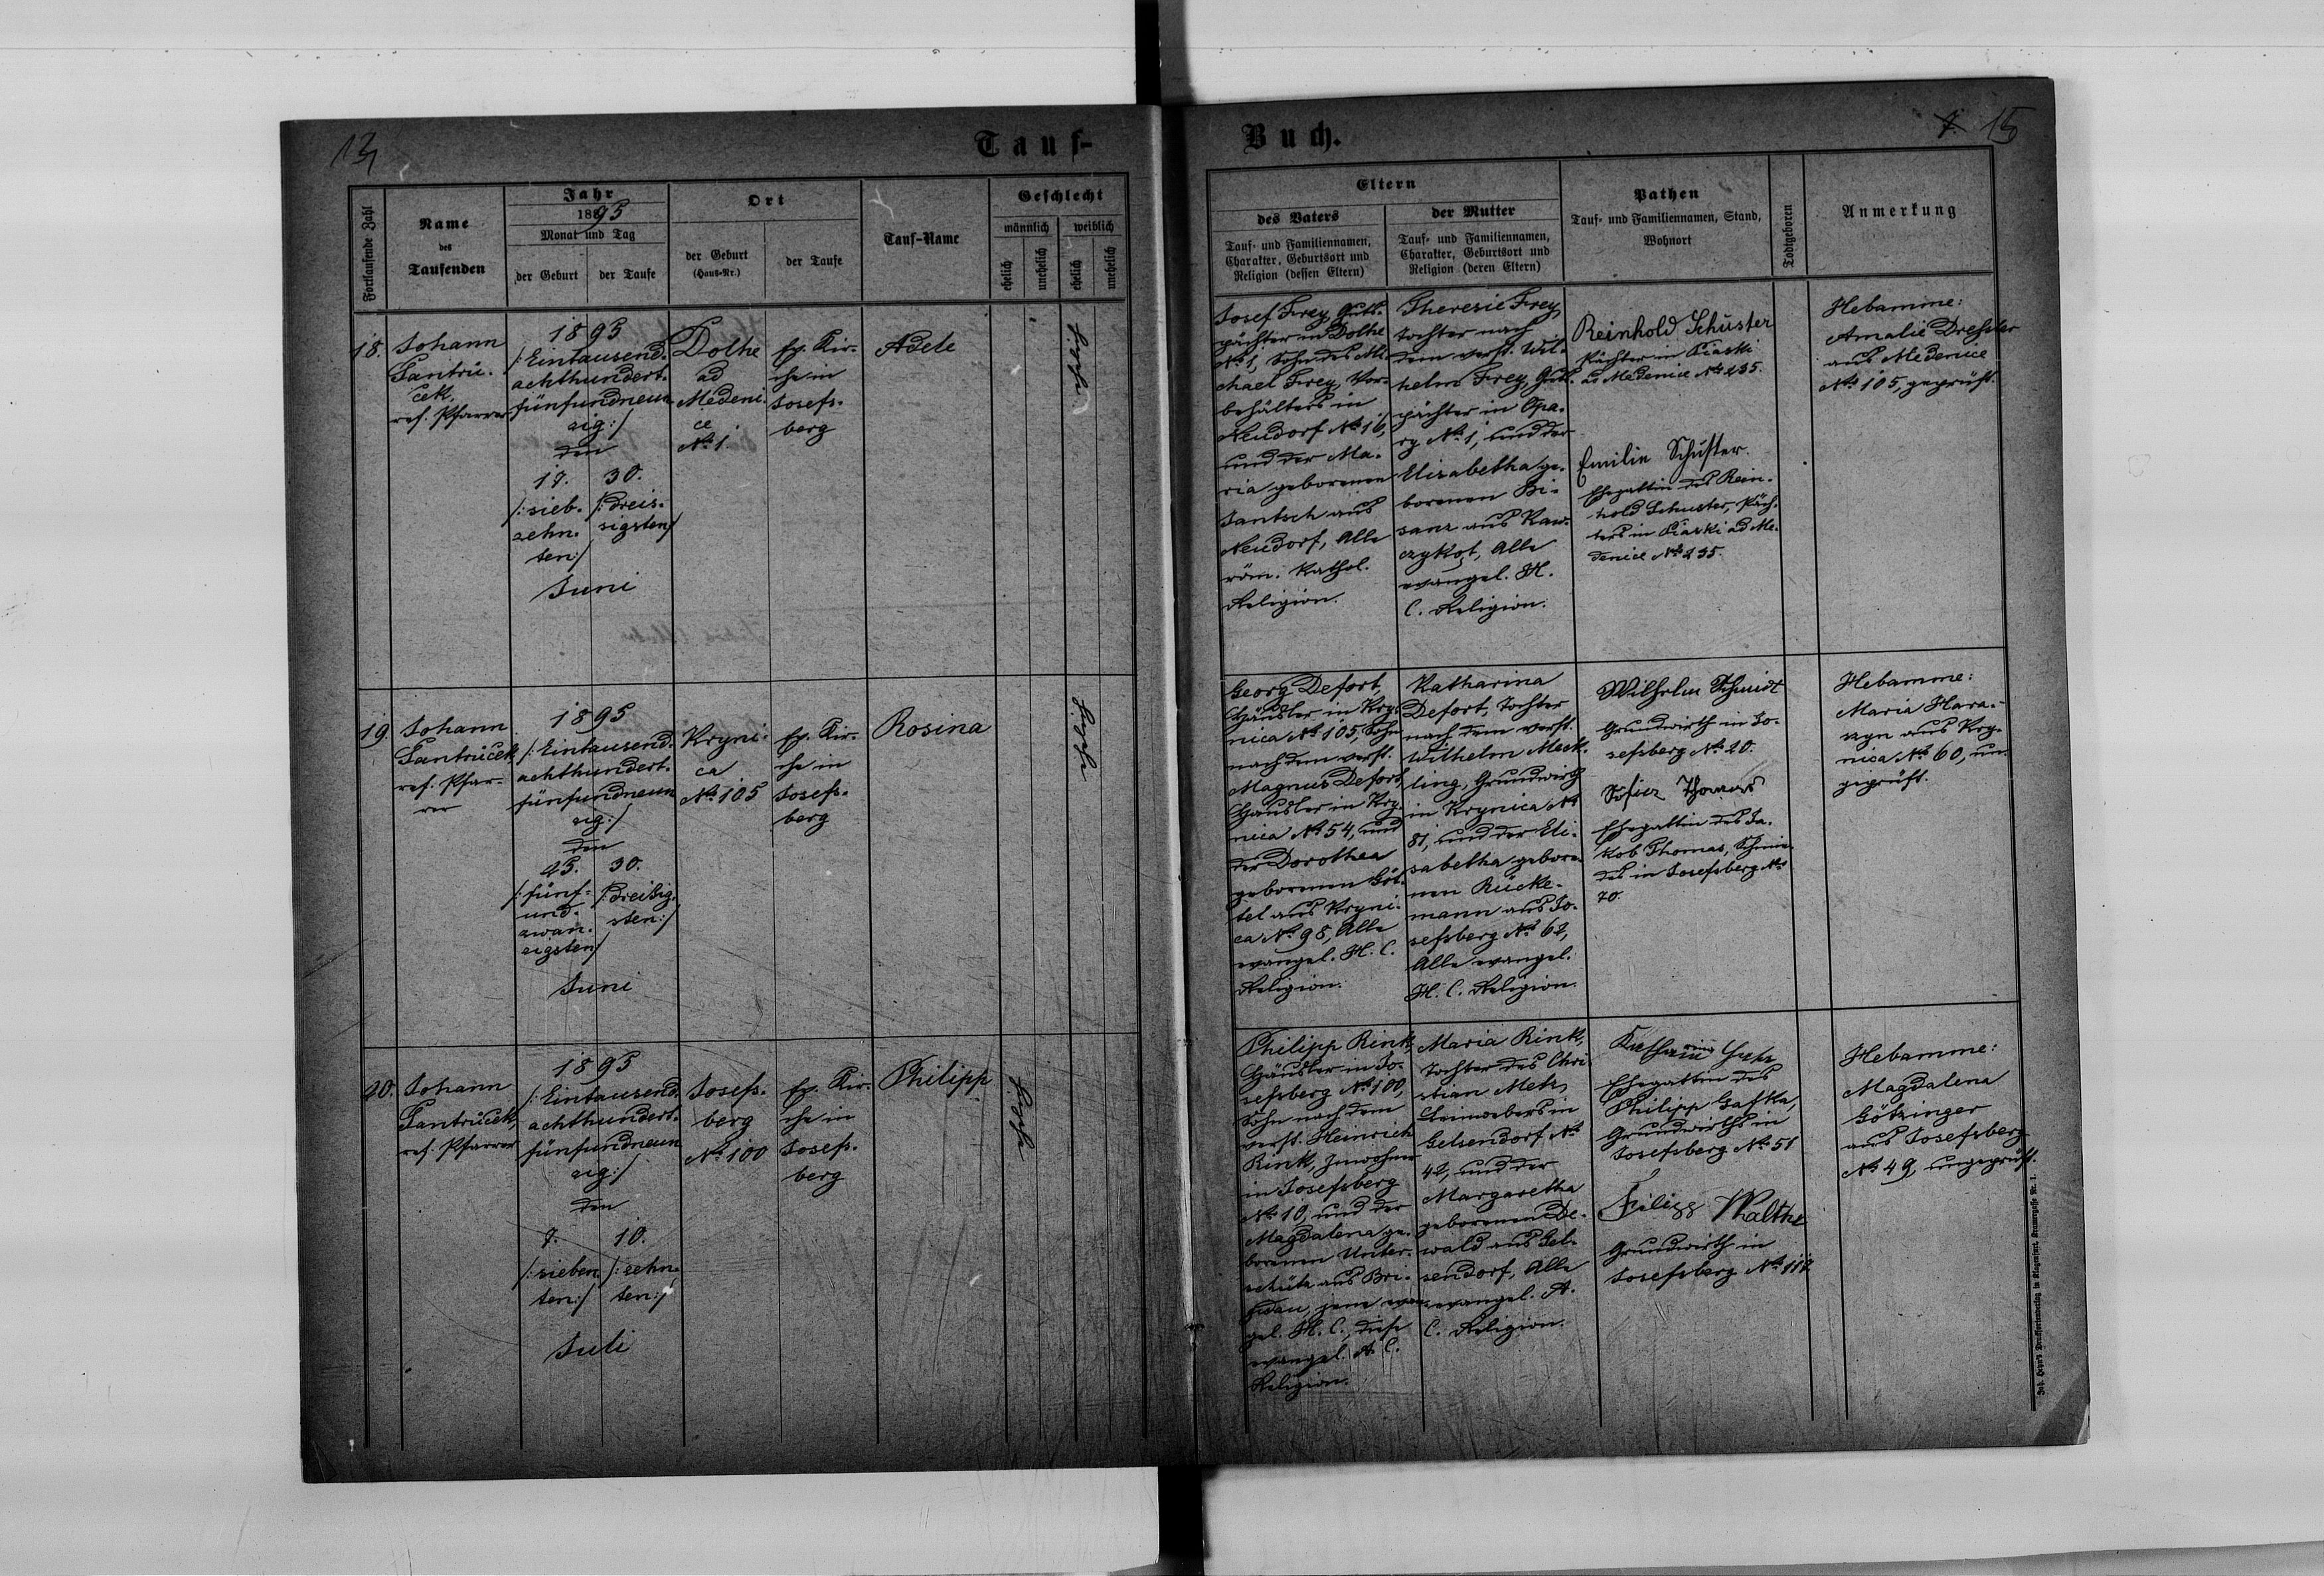 13
Tauf-
Buch.
15
Fortlaufende Zahl
Name
des
Taufenden
Jahr
1895
Monat und Tag
der Geburt
der Taufe
Ort
der Geburt
(Haus-Nr.)
der Taufe
Tauf-Name
Geschlecht
männlich
weiblich
ehelich
unehelich
ehelich
unehelich
Eltern
des Vaters
Tauf- und Familiennamen,
Charakter, Geburtsort und
Religion (dessen Eltern)
der Mutter
Tauf- und Familiennamen,
Charakter, Geburtsort und
Religion (deren Eltern)
Pathen
Tauf- und Familiennamen, Stand,
Wohnort
Todtgeboren
Anmerkung
18.
Johann
Jantrů-
ček,
ref. Pfarrer
1895
/:Eintausend-
achthundert-
fünfundneun-
zig:/
den
17.
/:sieb-
zehn-
ten:/
30.
/:dreis-
sigsten/
Juni
Dolhe
ad
Medeni-
ce
№ 1
ev. Kir-
che in
Josefs-
berg
Adele
ehelich
Josef Frey, Guts-
pächter in Dolhe
№ 1, Sohn des Mi-
chael Frey, Vor-
behälters in
Neudorf № 16,
und der Ma-
ria geborenen
Jantsch aus
Neudorf, Alle
röm. kathol.
Religion.
Theresie Frey,
Tochter nach
dem verst. Wil-
helm Frey, Guts-
pächter in Opa-
ry № 1, und der
Elisabetha ge-
borenen Bi-
sanz aus Kaw-
czykąt, Alle
evangel. H.
C. Religion.
Reinhold Schuster
Pächter in Piaski
ad Medenice № 235.
Emilie Schuster.
Ehegattin des Rein-
hold Schuster, Päch-
ters in Piaski ad Me-
denice № 235.
Hebamme:
Amalie Dressler
aus Medenice
№ 105, geprüft.
19.
Johann
Jantrůček,
ref. Pfar-
rer
1895
/:Eintausend-
achthundert-
fünfundneun
zig:/
den
25.
/:fünf-
und-
zwan-
zigsten/
30.
/:dreißig-
sten:/
Juni
Kryni-
ca
№ 105
ev. Kir-
che in
Josefs-
berg
Rosina
ehelich
Georg Defort,
Häusler in Kry-
nica № 105, Sohn
nach dem verst.
Magnus Defort,
Häusler in Kry-
nica № 54, und
der Dorothea
geborenen
tel aus Kryni-
ca № 98, Alle
evangel. H. C.
Religion.
Katharina
Defort, Tochter
nach dem verst.
Wilhelm Meck-
ling, Grundwirth
in Krynica №
81, und der Eli-
sabetha gebore-
nen Rücke-
mann aus Jo-
sefsberg № 62,
Alle evangel.
H. C. Religion.
Wilhelm Schmidt
Grundwirth in Jo-
sefsberg № 20.
Sofia Thomas
Ehegattin des Ja-
kob Thomas, Schmie-
des in Josefsberg №
70.
Hebamme:
Maria Hara-
zyn aus Kry-
nica № 60, un-
geprüft.
20.
Johann
Jantrůček,
ref. Pfarrer
1895
/:Eintausend-
achthundert-
fünfundneun
zig:/
den
7.
/:sieben-
ten:/
10.
/:zehn-
ten:/
Juli
Josefs-
berg
№ 100
ev. Kir-
che in
Josefs-
berg
Philipp
ehelich
Philipp Rink,
Häusler in Jo-
sefsberg № 100,
Sohn nach dem
verst. Heinrich
Rink, Inwohner
in Josefsberg
№ 10, und der
Magdalena ge-
borenen Unter-
schütz aus Bri-
gidau, jene evan-
gel. H. C., diese
evangel. A. C.
Religion.
Maria Rink,
Tochter des Chri-
stian Metz,
Leinwebers in
Gelsendorf №
42, und der
Margaretha
geborenen De-
wald aus Gel-
sendorf, Alle
evangel. A.
C. Religion.
Katharina
Ehegattin des
Philipp
Grundwirths in
Josefsberg № 51
Filipp Walther
Grundwirth in
Josefsberg № 117
Hebamme:
Magdalena
Götzinger
aus Josefsberg
№ 49, ungeprüft.